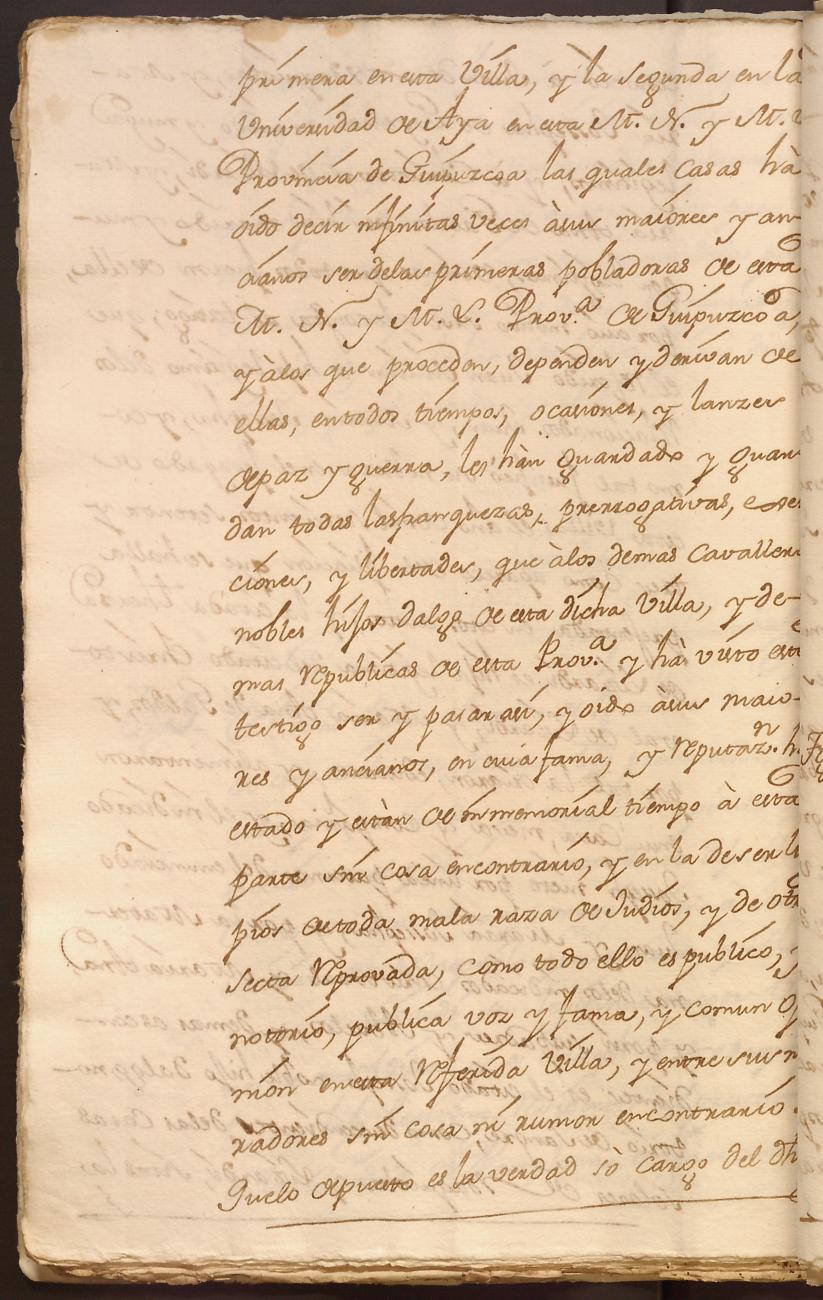 primera en esta Villa, y la segunda en la
Universidad de Aya en esta M. N. y M. L
Provincia de Guipuzcoa las quales casas hà
oido decir infinitas veces àsus maiores y an-
cianos ser delas primeras pobladoras de esta
M. N. y M. L. Prov.ª de Guipuzcoa,
y àlos que proceden, dependen y derivan de
ellas, entodos tiempos, ocasiones, y lanzes
depaz y guerra, les hàn guardado y guar
dan todas lasfranquezas, prerrogativas, esen
ciones, y libertades, que àlos demas Cavallero
nobles hijos dalgo de esta dicha Villa, y de-
mas republicas de esta Prov.ª y hà visto este
testigo ser y pasar asi, y oido àsus maio-
res y ancianos, en cuia fama, y reputaz.n h
estado y estàn de inmemorial tiempo à esta
parte sin cosa encontrario, y en la de ser li
pios detoda mala raza de Judios, y de otr
secta reprovada, como todo ello es publico, y
notorio, publica voz y fama, y comun op
nion enesta referida Villa, y entre sus m
radores sin cosa ni rumor encontrario.
Quelo depuesto es la verdad sò cargo del dh